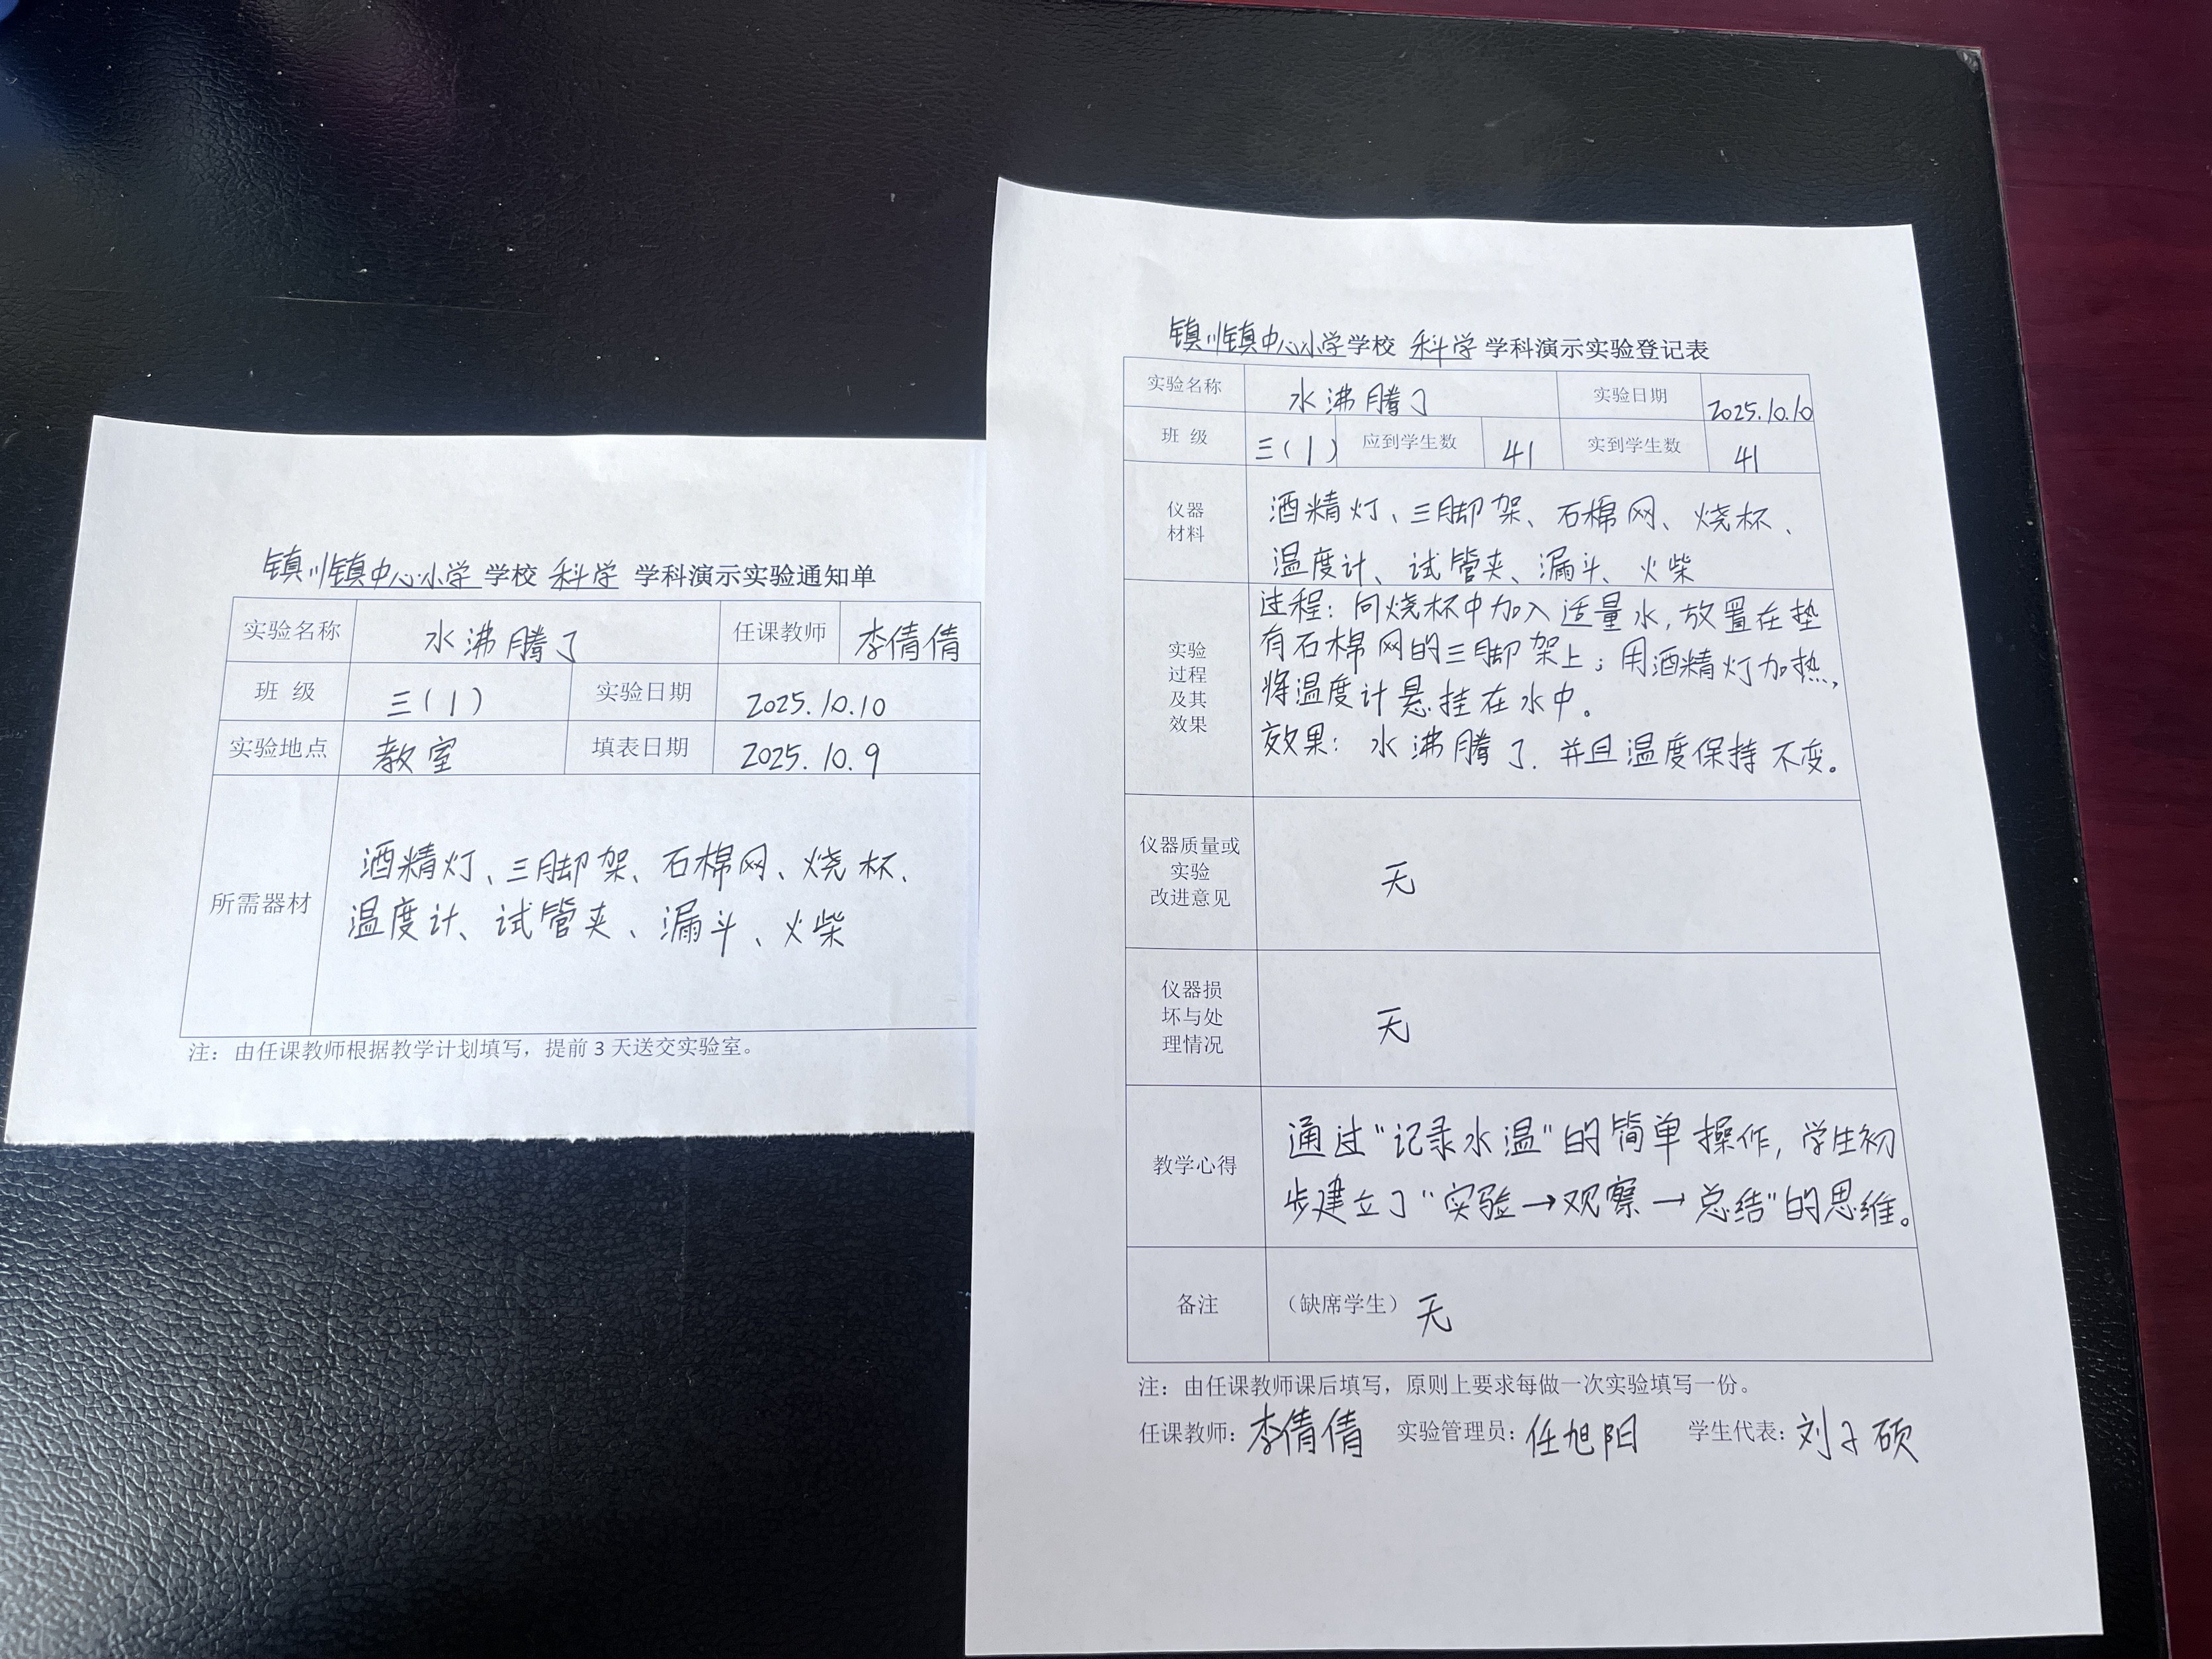 镇川镇中心小学学校 科学 学科演示实验通知单
实验名称 水沸腾了 任课教师 李倩倩
班 级 三(1) 实验日期 2025.10.10
实验地点 教室 填表日期 2025.10.9
所需器材
酒精灯、三脚架、石棉网、烧杯、
温度计、试管夹、漏斗、火柴
注：由任课教师根据教学计划填写，提前 3 天送交实验室。
镇川镇中心小学学校 科学 学科演示实验登记表
实验名称 水沸腾了 实验日期 2025.10.10
班 级 三(1) 应到学生数 41 实到学生数 41
仪器
材料
酒精灯、三脚架、石棉网、烧杯、
温度计、试管夹、漏斗、火柴
实验
过程
及其
效果
过程：向烧杯中加入适量水，放置在垫
有石棉网的三脚架上；用酒精灯加热，
将温度计悬挂在水中。
效果：水沸腾了，并且温度保持不变。
仪器质量或
实验
改进意见
无
仪器损
坏与处
理情况
无
教学心得
通过"记录水温"的简单操作，学生初
步建立了"实验→观察→总结"的思维。
备注 （缺席学生） 无
注：由任课教师课后填写，原则上要求每做一次实验填写一份。
任课教师：李倩倩 实验管理员：任旭阳 学生代表：刘子硕